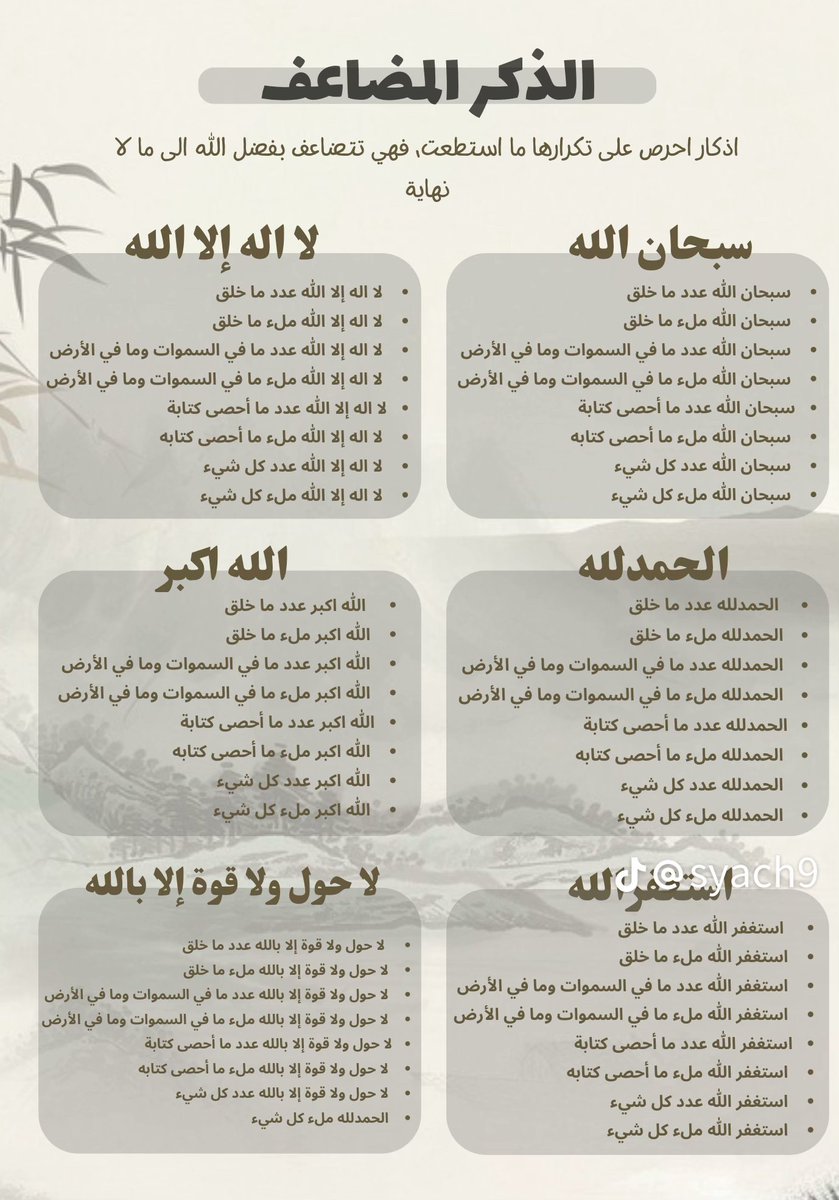 الذكر المضاعف
اذكار احرص على تكرارها ما استطعت، فهي تتضاعف بفضل الله الى ما لا
نهاية
سبحان الله
• سبحان الله عدد ما خلق
• سبحان الله ملء ما خلق
• سبحان الله عدد ما في السموات وما في الأرض
• سبحان الله ملء ما في السموات وما في الأرض
• سبحان الله عدد ما أحصى كتابة
• سبحان الله ملء ما أحصى كتابه
• سبحان الله عدد كل شيء
• سبحان الله ملء كل شيء
لا اله إلا الله
• لا اله إلا الله عدد ما خلق
• لا اله إلا الله ملء ما خلق
• لا اله إلا الله عدد ما في السموات وما في الأرض
• لا اله إلا الله ملء ما في السموات وما في الأرض
• لا اله إلا الله عدد ما أحصى كتابة
• لا اله إلا الله ملء ما أحصى كتابه
• لا اله إلا الله عدد كل شيء
• لا اله إلا الله ملء كل شيء
الحمدلله
• الحمدلله عدد ما خلق
• الحمدلله ملء ما خلق
• الحمدلله عدد ما في السموات وما في الأرض
• الحمدلله ملء ما في السموات وما في الأرض
• الحمدلله عدد ما أحصى كتابة
• الحمدلله ملء ما أحصى كتابه
• الحمدلله عدد كل شيء
• الحمدلله ملء كل شيء
الله اكبر
• الله اكبر عدد ما خلق
• الله اكبر ملء ما خلق
• الله اكبر عدد ما في السموات وما في الأرض
• الله اكبر ملء ما في السموات وما في الأرض
• الله اكبر عدد ما أحصى كتابة
• الله اكبر ملء ما أحصى كتابه
• الله اكبر عدد كل شيء
• الله اكبر ملء كل شيء
استغفر الله
@syach9
• استغفر الله عدد ما خلق
• استغفر الله ملء ما خلق
• استغفر الله عدد ما في السموات وما في الأرض
• استغفر الله ملء ما في السموات وما في الأرض
• استغفر الله عدد ما أحصى كتابة
• استغفر الله ملء ما أحصى كتابه
• استغفر الله عدد كل شيء
• استغفر الله ملء كل شيء
لا حول ولا قوة إلا بالله
• لا حول ولا قوة إلا بالله عدد ما خلق
• لا حول ولا قوة إلا بالله ملء ما خلق
• لا حول ولا قوة إلا بالله عدد ما في السموات وما في الأرض
• لا حول ولا قوة إلا بالله ملء ما في السموات وما في الأرض
• لا حول ولا قوة إلا بالله عدد ما أحصى كتابة
• لا حول ولا قوة إلا بالله ملء ما أحصى كتابه
• لا حول ولا قوة إلا بالله عدد كل شيء
• الحمدلله ملء كل شيء